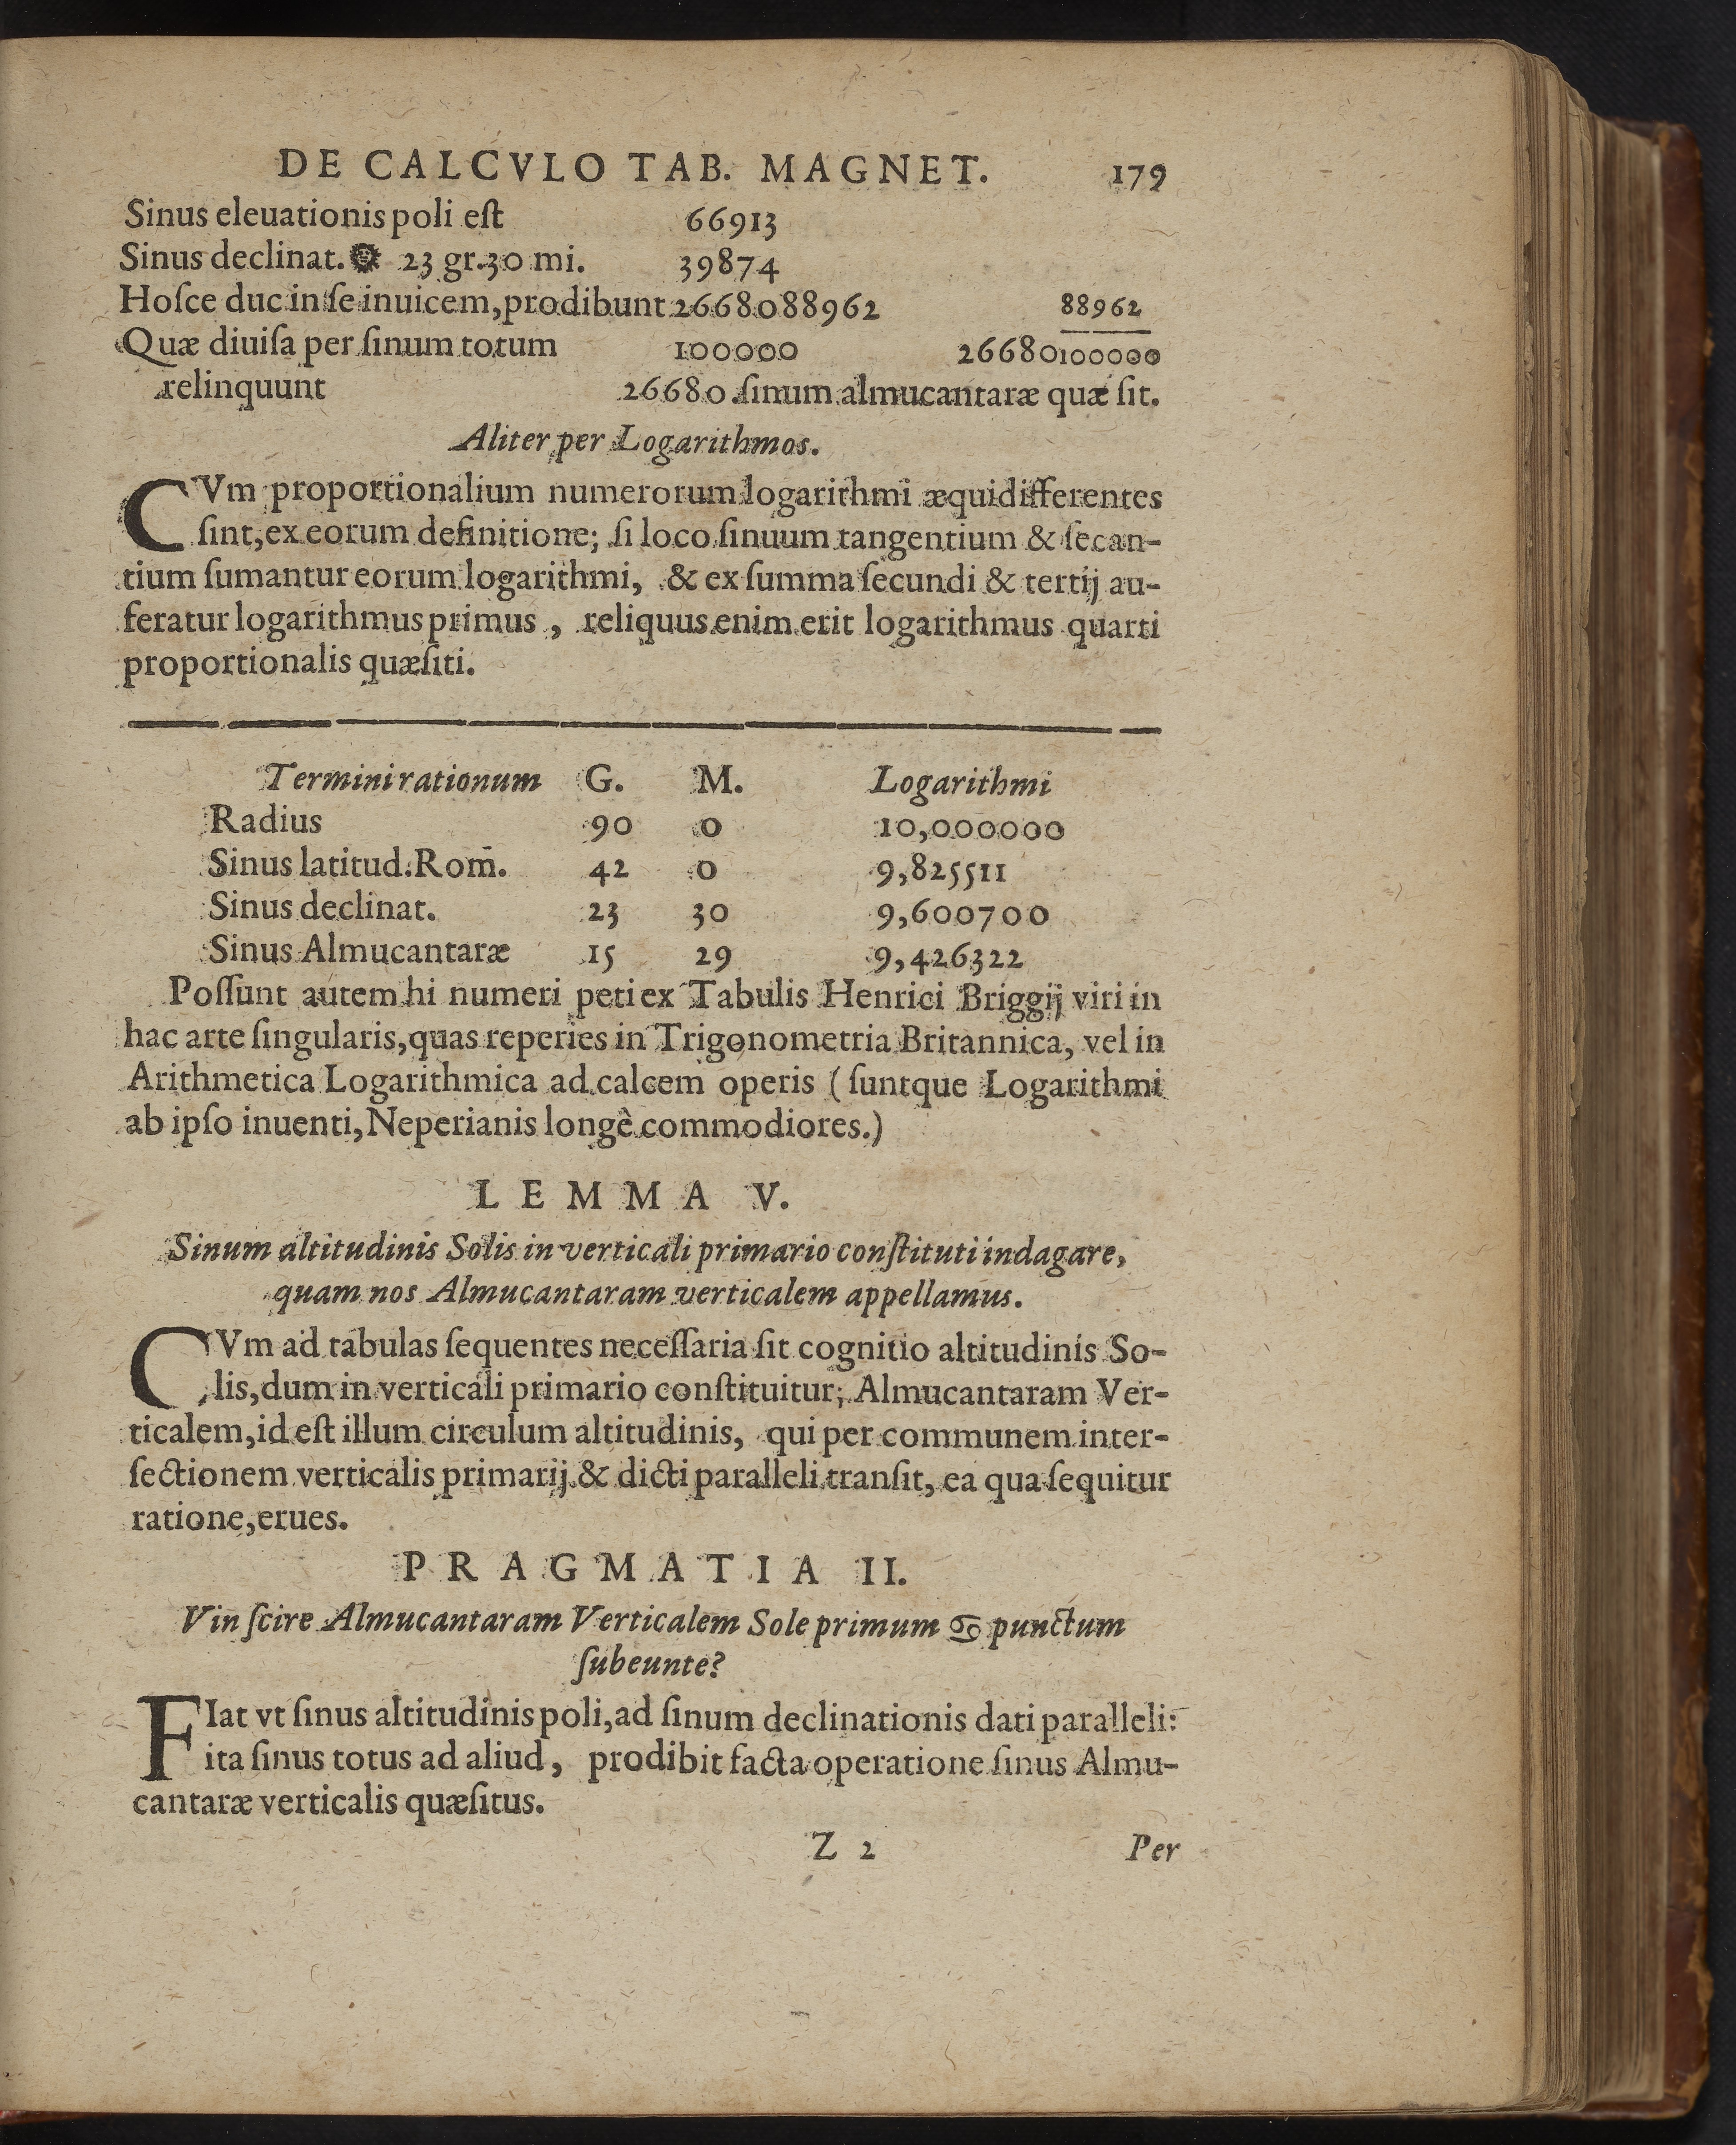 DE CALCVLO TAB. MAGNET. 179
Sinus eleuationis poli eſt 66913
Sinus declinat. ☉ 23 gr. 30 mi. 39874
Hoſce duc in ſe inuicem, prodibunt 2668088962 88962
Quæ diuiſa per ſinum totum 100000 26680100000
relinquunt 26680 ſinum almucantaræ quæ ſit.
Aliter per Logarithmos.
CVm proportionalium numerorum logarithmi æquidifferentes
ſint, ex eorum definitione; ſi loco ſinuum tangentium & ſecan-
tium ſumantur eorum logarithmi, & ex ſumma ſecundi & tertij au-
feratur logarithmus primus, reliquus enim erit logarithmus quarti
proportionalis quæſiti.
Termini rationum G. M. Logarithmi
Radius 90 0 10,000000
Sinus latitud. Rom̄. 42 0 9,825511
Sinus declinat. 23 30 9,600700
Sinus Almucantaræ 15 29 9,426322
Poſſunt autem hi numeri peti ex Tabulis Henrici Briggij viri in
hac arte ſingularis, quas reperies in Trigonometria Britannica, vel in
Arithmetica Logarithmica ad calcem operis (ſuntque Logarithmi
ab ipſo inuenti, Neperianis longè commodiores.)
LEMMA V.
Sinum altitudinis Solis in verticali primario conſtituti indagare,
quam nos Almucantaram verticalem appellamus.
CVm ad tabulas ſequentes neceſſaria ſit cognitio altitudinis So-
lis, dum in verticali primario conſtituitur; Almucantaram Ver-
ticalem, id eſt illum circulum altitudinis, qui per communem inter-
ſectionem verticalis primarij & dicti paralleli tranſit, ea qua ſequitur
ratione, erues.
PRAGMATIA II.
Vin ſcire Almucantaram Verticalem Sole primum ♋ punctum
ſubeunte?
FIat vt ſinus altitudinis poli, ad ſinum declinationis dati paralleli:
ita ſinus totus ad aliud, prodibit facta operatione ſinus Almu-
cantaræ verticalis quæſitus.
Z 2 Per